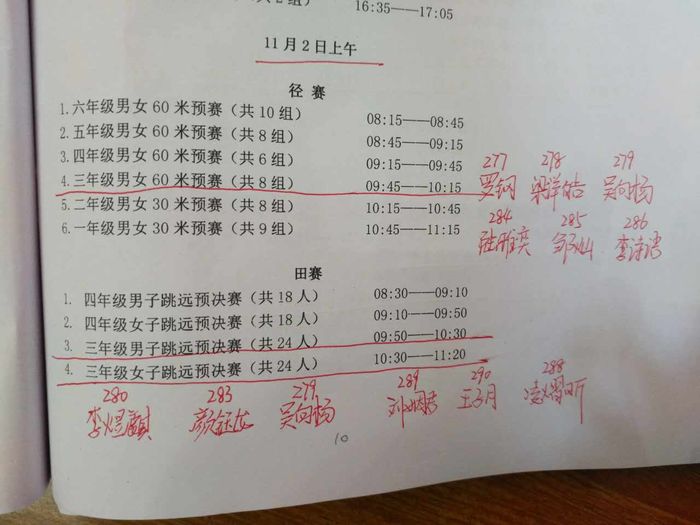 16:35——17:05
11月2日上午
径 赛
1.六年级男女60米预赛（共10组） 08:15——08:45
2.五年级男女60米预赛（共8组） 08:45——09:15
3.四年级男女60米预赛（共6组） 09:15——09:45
4.三年级男女60米预赛（共8组） 09:45——10:15
5.二年级男女30米预赛（共8组） 10:15——10:45
6.一年级男女30米预赛（共9组） 10:45——11:15
277 278 279
罗钢 吴向杨
284 285 286
田赛
1. 四年级男子跳远预决赛（共18人） 08:30——09:10
2. 四年级女子跳远预决赛（共18人） 09:10——09:50
3. 三年级男子跳远预决赛（共24人） 09:50——10:30
4. 三年级女子跳远预决赛（共24人） 10:30——11:20
280 283 279 289 290 288
李煜麒 吴向杨
10